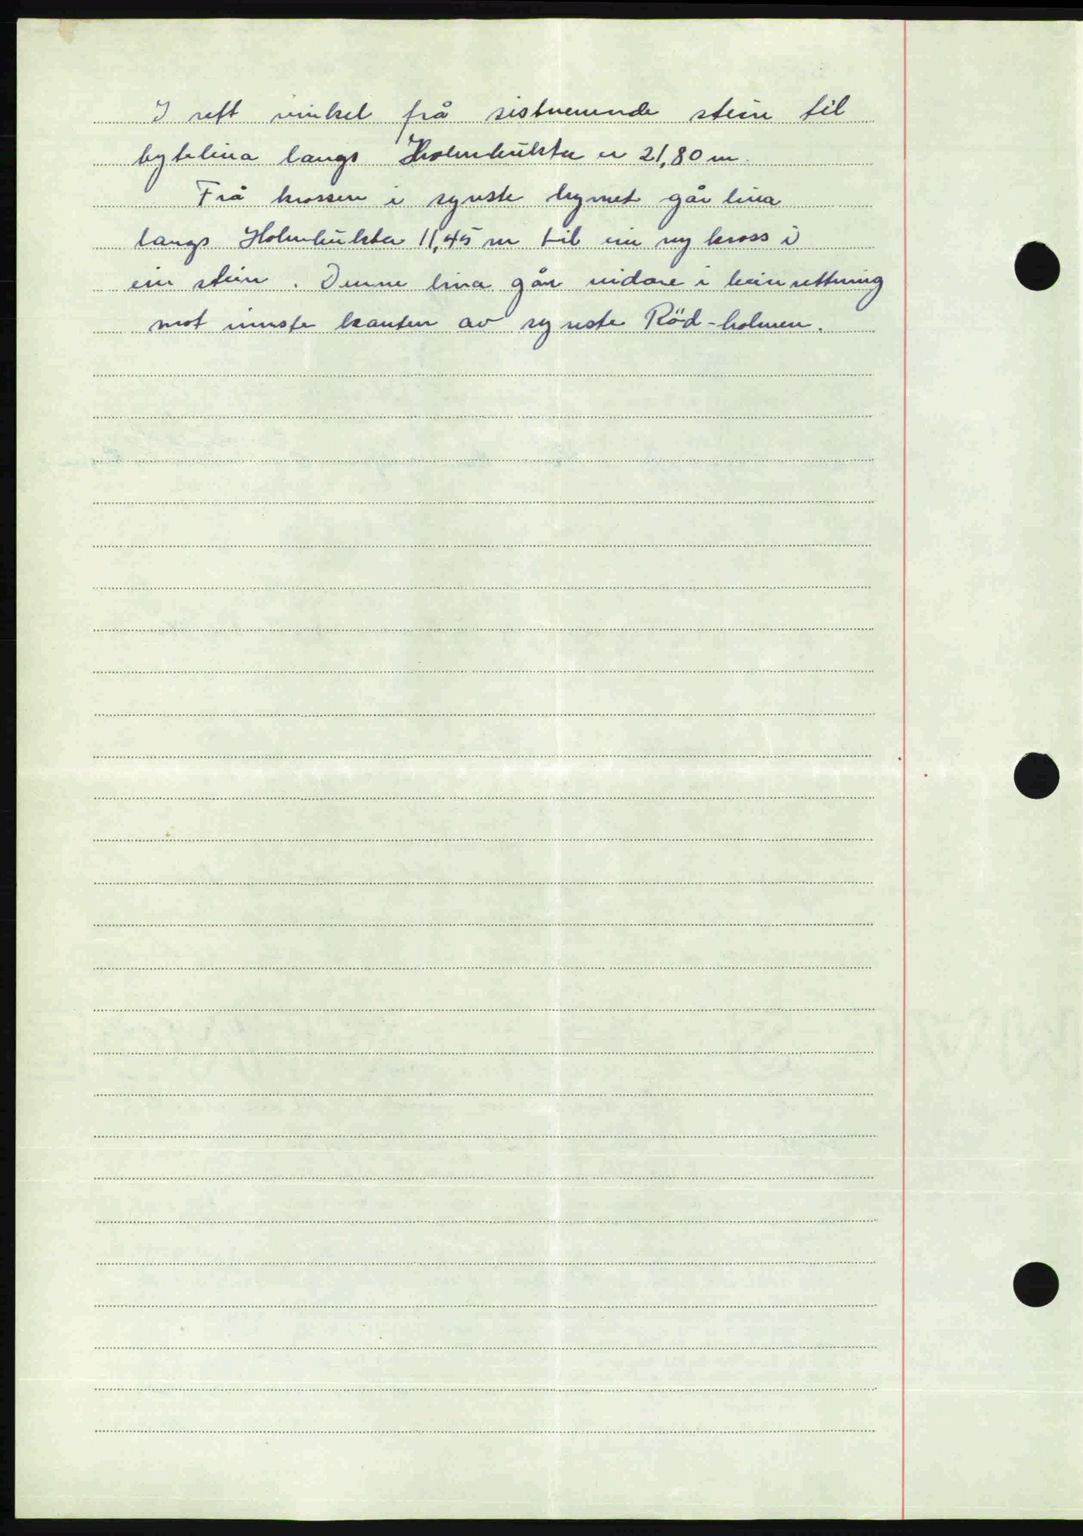 I rett vinkel frå sistnemnde stein til
bytelina langs Holmbukta er 21,80 m.
Frå krossen i synste hyrnet går lina
langs Holmbukta 11,45 m til ein ny kross i
ein stein. Denne lina går vidare i bein rettning
mot innste kanten av synste Röd-holmen.